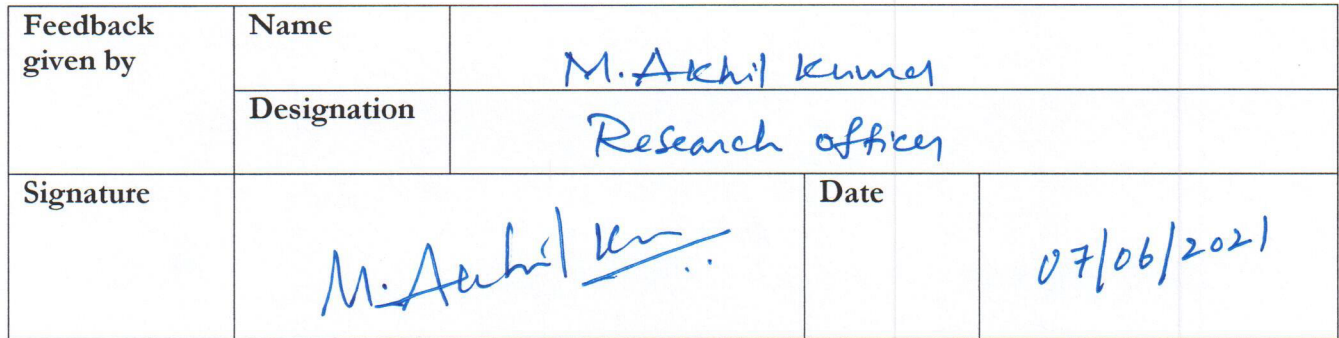 Feedback given by
Name
M. Akhil Kumar
Designation
Research officer
Signature
M. Akhil Kum
Date
07/06/2021